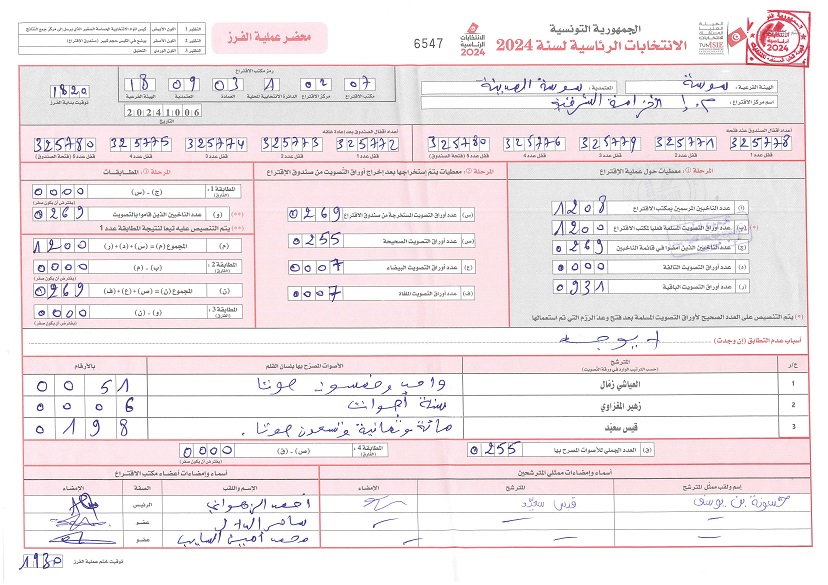 الجمهورية التونسية
الانتخابات الرئاسية لسنة 2024
6547
الانتخابات الرئاسية 2024
محضر عملية الفرز
الهيئة الفرعية: سوسة
المعتمدية: سوسة المدينة
اسم مركز الاقتراع:
رمز مكتب الاقتراع
18 09 03 1 02 07
الهيئة الفرعية المعتمدية العمادة الدائرة الانتخابية المحلية مركز الاقتراع مكتب الاقتراع
1820
توقيت بداية الفرز
20241006
التاريخ
أعداد أقفال الصندوق عند فتحه
325778 325771 325779 325776 325780
قفل عدد 1 قفل عدد 2 قفل عدد 3 قفل عدد 4 قفل عدد 5 (فتحة الصندوق)
أعداد أقفال الصندوق بعد إعادة غلقه
325772 325773 325774 325775 325780
قفل عدد 1 قفل عدد 2 قفل عدد 3 قفل عدد 4 قفل عدد 5 (فتحة الصندوق)
المرحلة 1: معطيات حول عملية الاقتراع
(أ) عدد الناخبين المرسمين بمكتب الاقتراع 1208
(ب) عدد أوراق التصويت المسلمة فعليا لمكتب الاقتراع 1200
(ج) عدد الناخبين الذين أمضوا في قائمة الناخبين 0269
(د) عدد أوراق التصويت التالفة 0000
(ر) عدد أوراق التصويت الباقية 0931
(*) يتم التنصيص على العدد الصحيح لأوراق التصويت المسلمة بعد فتح وعد الرزم التي تم استعمالها
معطيات يتم استخراجها بعد إخراج أوراق التصويت من صندوق الاقتراع
(س) عدد أوراق التصويت المستخرجة من صندوق الاقتراع 0269
(ص) عدد أوراق التصويت الصحيحة 0255
(ع) عدد أوراق التصويت البيضاء 0007
(ف) عدد أوراق التصويت الملغاة 0007
المطابقات
المطابقة 1: (ج) - (س) 0000
(و) عدد الناخبين الذين قاموا بالتصويت 0269
(**) يتم التنصيص عليه تبعا لنتيجة المطابقة عدد 1
(م) المجموع (م) = (س) + (د) + (ر) 1200
المطابقة 2: (ب) - (م) 0000
(ن) المجموع (ن) = (ص) + (ع) + (ف) 0269
المطابقة 3: (و) - (ن) 0000
أسباب عدم التطابق (إن وجدت)
ع/ر المترشح الأصوات المصرّح بها بلسان القلم بالأرقام
(حسب الترتيب الوارد في ورقة التصويت)
1 العياشي زمال واحد وخمسون صوتا 0051
2 زهير المغزاوي ستة أصوات 0006
3 قيس سعيّد مائة وثمانية وتسعون صوتا. 0198
(ق) العدد الجملي للأصوات المصرح بها 0255
المطابقة 4: (ص) - (ق) 0000
أسماء وإمضاءات ممثلي المترشحين
إسم ولقب ممثل المترشح المترشح الإمضاء
حسونة بن يوسف قيس سعيّد
أسماء وإمضاءات أعضاء مكتب الاقتراع
الاسم واللقب الصفة الإمضاء
الرئيس
عضو
عضو
توقيت ختم عملية الفرز 1930